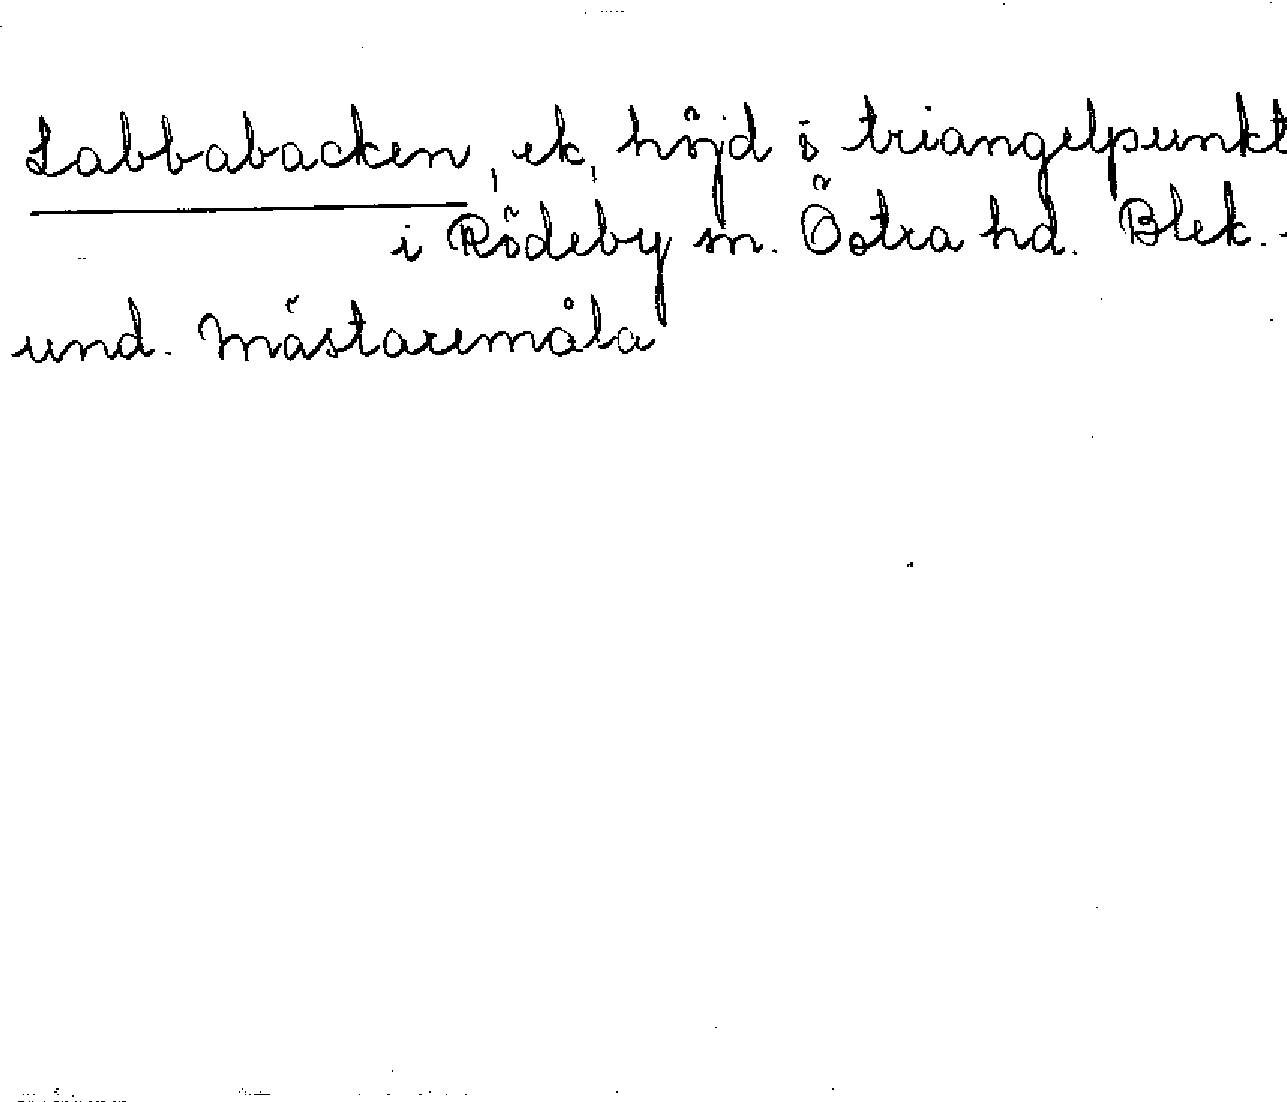 Labbabacken, ek, höjd i triangelpunkt
i Rödeby sn. Östra hd. Blek.
und. Mästaremåla